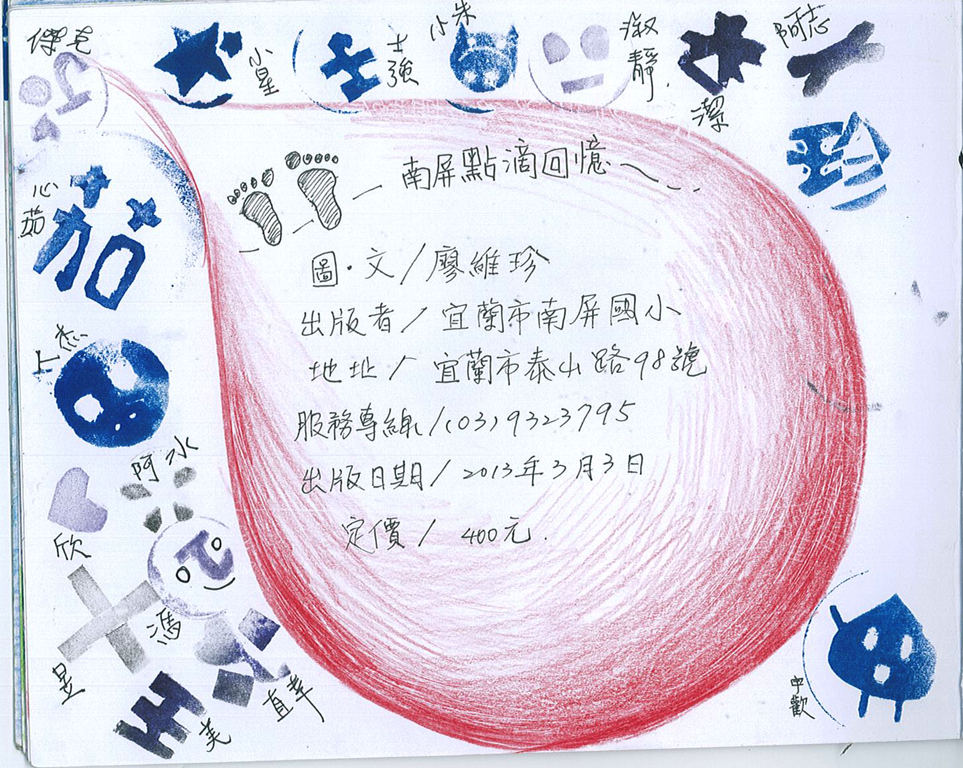 傑克
小星
士強
小朱
淑靜.
潔
阿志
珍
心茄
茄
南屏點滴回憶
圖.文/廖維珍
出版者/宜蘭市南屏國小
地址/宜蘭市泰山路98號
服務專線/(03)9323795
出版日期/2013年3月3日
定價/400元.
阿水
欣
馮
昱
中歡